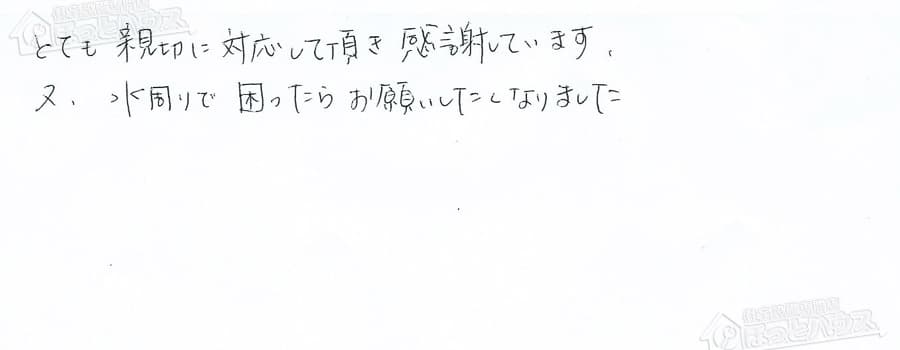 とても親切に対応して頂き感謝しています。
又、水周りで困ったらお願いしたくなりました
住宅設備専門店
ほっとハウス